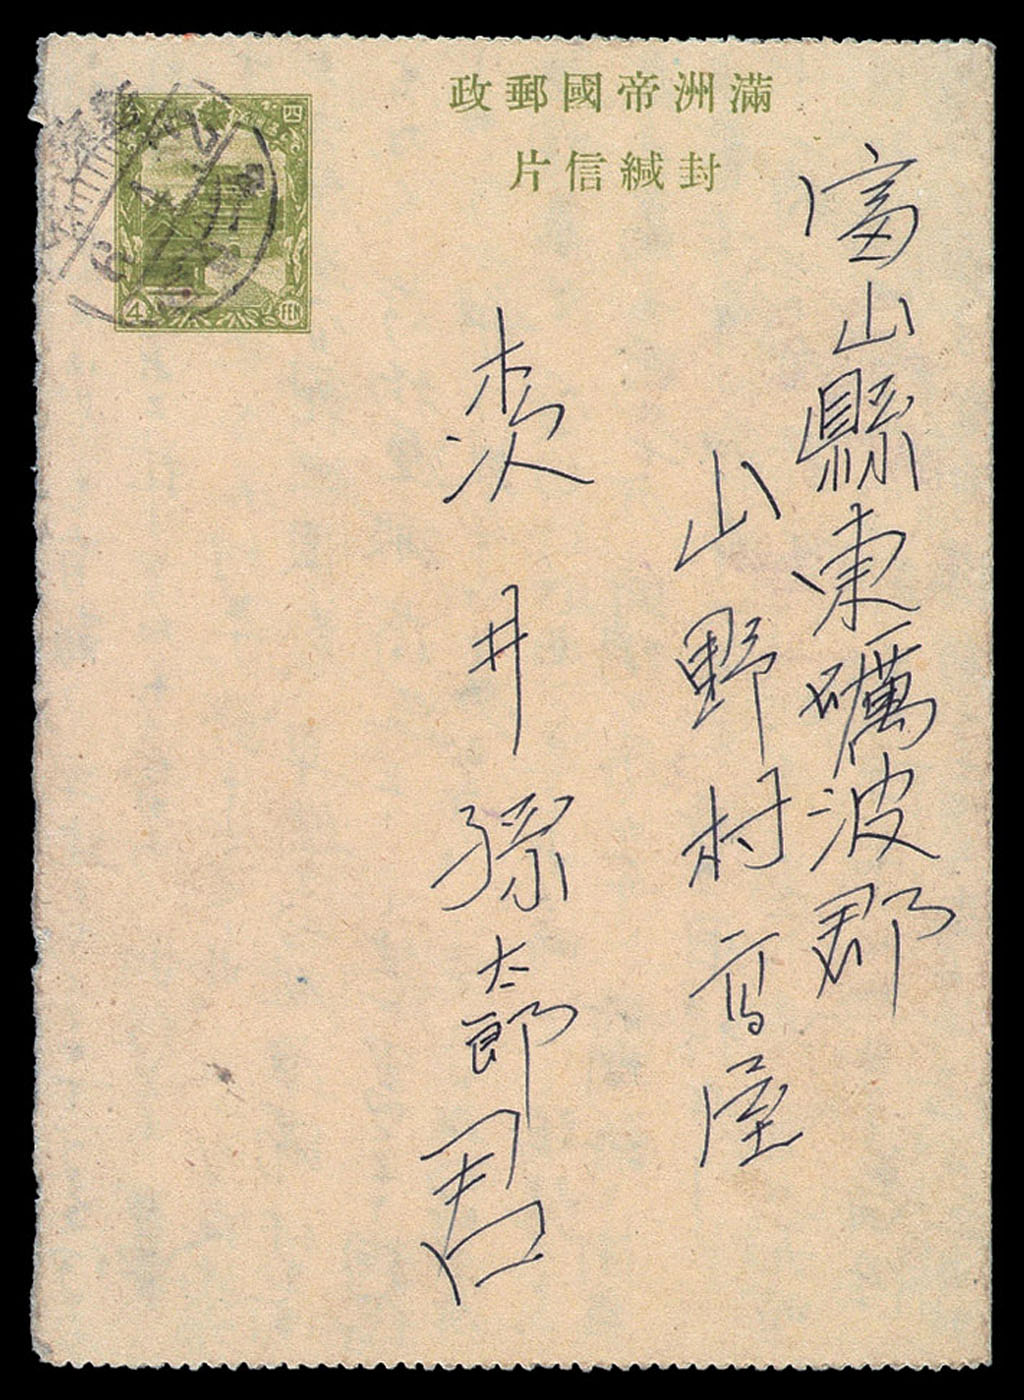 滿洲帝國郵政
封緘信片
四
4
FEN
富山縣東礪波郡
山野村高屋
桼井孫太郎君